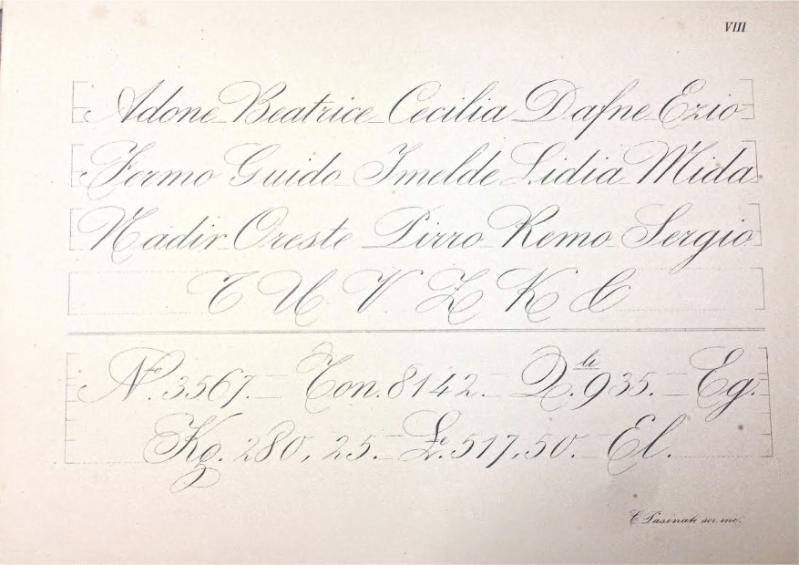 VIII
Adone Beatrice Cecilia Dafne Ezio
Fermo Guido Imelde Lidia Mida
Nadir Oreste Pirro Remo Sergio
T U V Z K C
N. 3567. — Ton. 8142. — Q.li 935. — Eg.
Kg. 280, 25. — £. 517, 50. — El.